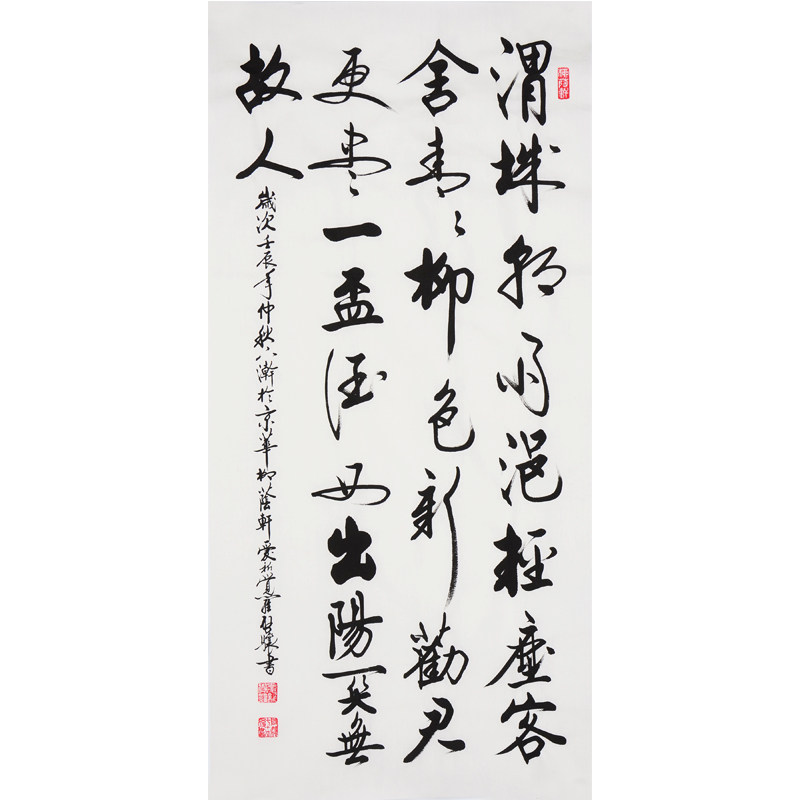 渭城朝雨浥輕塵客
舍青々柳色新勸君
更盡一盃酒西出陽關無
故人
歲次壬辰年仲秋瀚於京華柳蔭軒愛新覺羅啟驤書